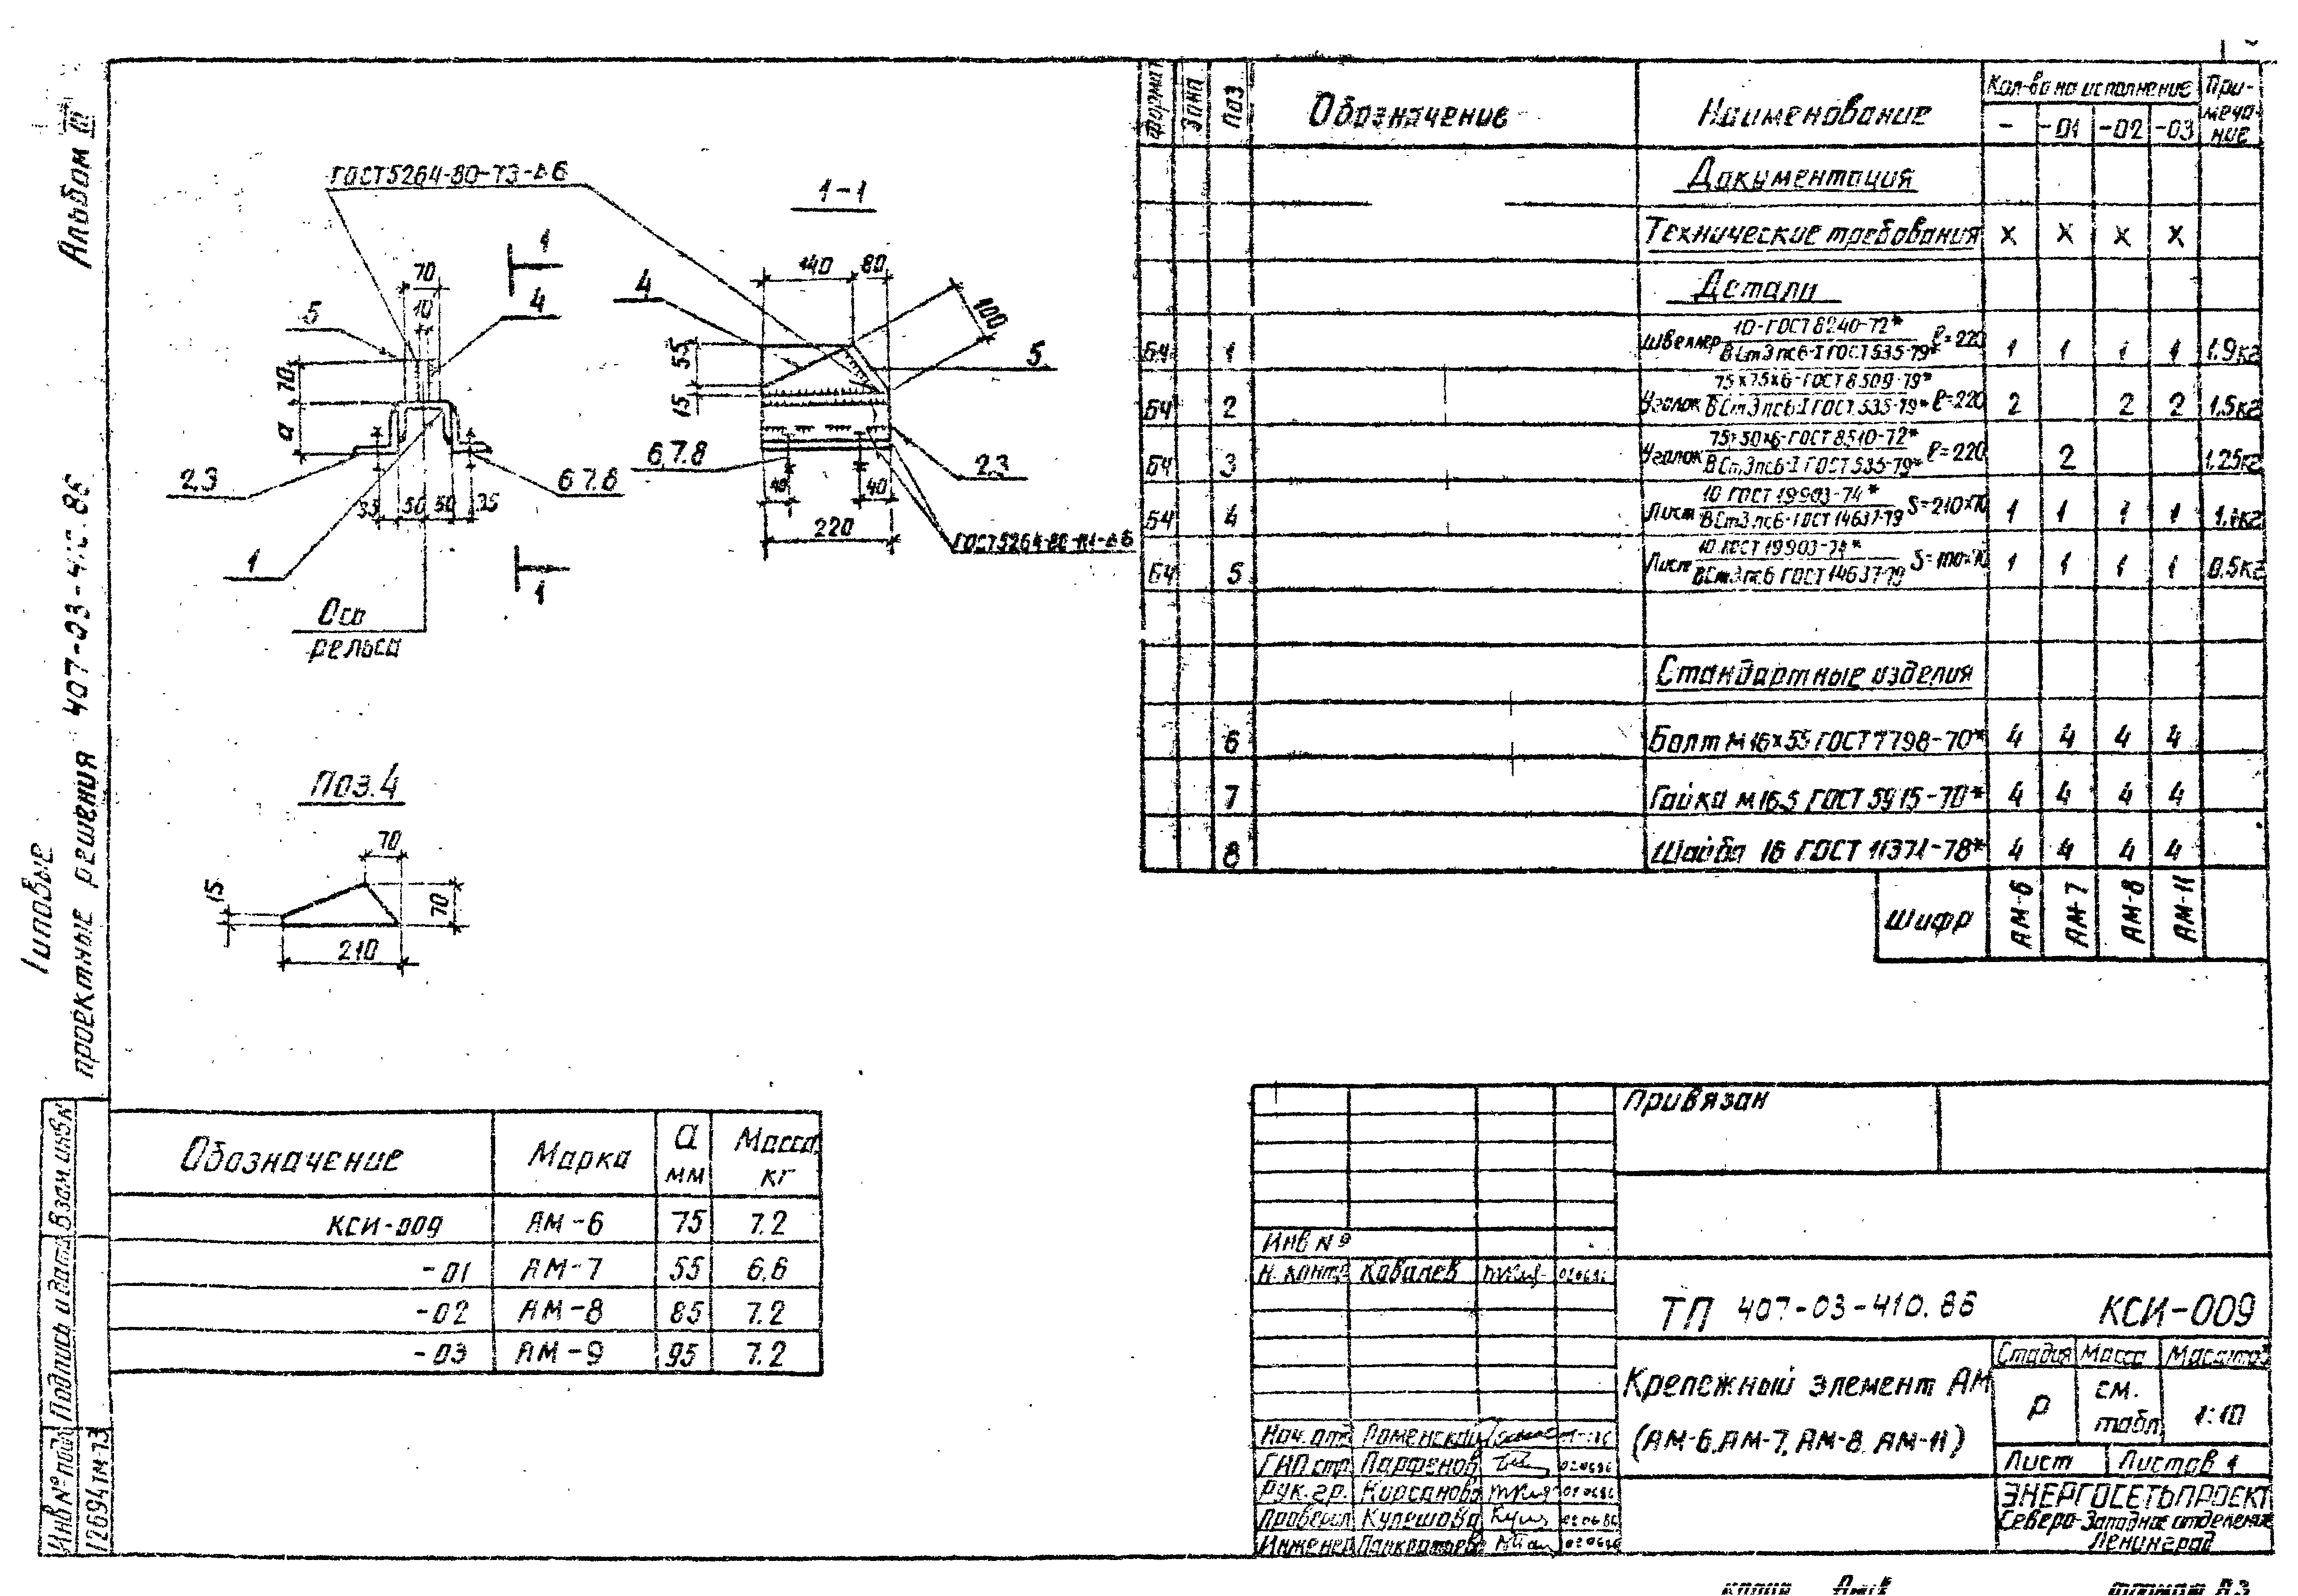 Альбом III
Типовые
проектные решения 407-03-410.86
ГОСТ 5264-80-Т3-⊿6
1-1
1
70
10
4
5
70
а
2,3
6 7.8
35
50
50
35
1
1
Ось
рельса
140
80
4
100
55
15
5
6,7.8
2,3
40
40
220
ГОСТ 5264-80-Н1-⊿6
Поз.4
70
15
70
210
Формат
Зона
Поз
Обозначение
Наименование
Кол-во на исполнение
Примечание
-
-01
-02
-03
Документация
Технические требования х х х х
Детали
Б4 1 Швеллер 10-ГОСТ 8240-72* / ВСт3пс6-I ГОСТ 535-79* ℓ=220 1 1 1 1 1,9кг
Б4 2 Уголок 75х75х6-ГОСТ 8509-79* / ВСт3пс6-I ГОСТ 535-79* ℓ=220 2 2 2 1,5кг
Б4 3 Уголок 75х50х6-ГОСТ 8510-72* / ВСт3пс6-I ГОСТ 535-79* ℓ=220 2 1.25кг
Б4 4 Лист 10 ГОСТ 19903-74* / ВСт3пс6-ГОСТ 14637-79 S=210х70 1 1 1 1
Б4 5 Лист 10 ГОСТ 19903-74* / ВСт3пс6 ГОСТ 14637-79 S=100х70 1 1 1 1 0,5кг
Стандартные изделия
6 Болт М16х55 ГОСТ 7798-70* 4 4 4 4
7 Гайка М16.5 ГОСТ 5915-70* 4 4 4 4
8 Шайба 16 ГОСТ 11371-78* 4 4 4 4
Шифр АМ-6 АМ-7 АМ-8 АМ-11
Обозначение Марка а мм Масса, кг
КСИ-009 АМ-6 75 7.2
-01 АМ-7 55 6,6
-02 АМ-8 85 7.2
-03 АМ-9 95 7.2
Взам.инв.№
Подпись и дата
Инв № подл
12694тм-т3
Привязан
Инв №
Н. контр Ковалев 020686
ТП 407-03-410.86 КСИ-009
Крепежный элемент АМ
(АМ-6, АМ-7, АМ-8, АМ-11)
Стадия Масса Масштаб
Р см. табл. 1:10
Лист Листов 1
Нач. отд Роменский
ГИП стр Парфенов 020686
Рук. гр. Кирсанова 020686
Проверил Кулешова 020686
Инженер Панкратьева 020686
ЭНЕРГОСЕТЬПРОЕКТ
Северо-Западное отделение
Ленинград
копия
формат А3